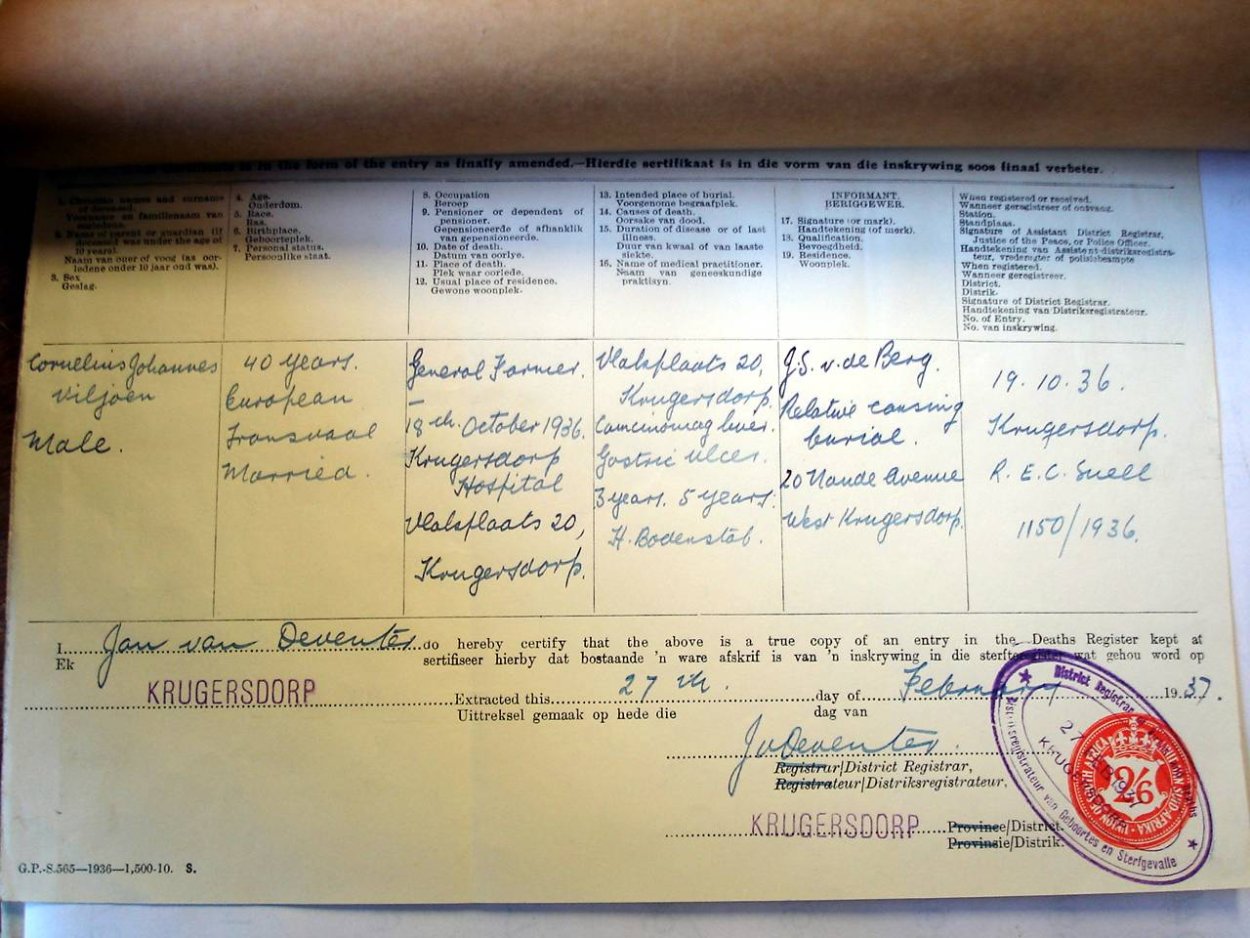 is in the form of the entry as finally amended.—Hierdie sertifikaat is in die vorm van die inskrywing soos finaal verbeter.
1. Christian names and surname of deceased.
Voorname en familienaam van
2. Name of parent or guardian (if deceased was under the age of 10 years).
Naam van ouer of voog (as oorledene onder 10 jaar oud was).
3. Sex
Geslag.
4. Age.
Ouderdom.
5. Race.
Ras.
6. Birthplace.
Geboorteplek.
7. Personal status.
Persoonlike staat.
8. Occupation
Beroep
9. Pensioner or dependent of pensioner.
Gepensioneerde of afhanklik van gepensioneerde.
10. Date of death.
Datum van oorlye.
11. Place of death.
Plek waar oorlede.
12. Usual place of residence.
Gewone woonplek.
13. Intended place of burial.
Voorgenome begraafplek.
14. Causes of death.
Oorsake van dood.
15. Duration of disease or of last illness.
Duur van kwaal of van laaste siekte.
16. Name of medical practitioner.
Naam van geneeskundige praktisyn.
INFORMANT.
BERIGGEWER.
17. Signature (or mark).
Handtekening (of merk).
18. Qualification.
Bevoegdheid.
19. Residence.
Woonplek.
When registered or received.
Wanneer geregistreer of ontvang.
Station.
Standplaas.
Signature of Assistant District Registrar, Justice of the Peace, or Police Officer.
Handtekening van Assistent-distriksregistrateur, vrederegter of polisiebeampte
When registered.
Wanneer geregistreer.
District.
Distrik.
Signature of District Registrar.
Handtekening van Distriksregistrateur.
No. of Entry.
No. van inskrywing.
Cornelius Johannes
Viljoen
Male.
40 years.
European
Transvaal
Married.
General Farmer.
—
18th. October 1936.
Krugersdorp
Hospital
Vlakplaats 20,
Krugersdorp.
Vlakplaats 20,
Krugersdorp.
Gastric ulcer.
3 years. 5 years.
H. Bodenstab.
J.S. v. de Berg.
Relative causing
burial.
20 Naude Avenue
West Krugersdorp.
19.10.36.
Krugersdorp.
R. E. C. Snell
1150/1936.
I Jan van Deventer do hereby certify that the above is a true copy of an entry in the Deaths Register kept at
Ek sertifiseer hierby dat bostaande 'n ware afskrif is van 'n inskrywing in die sterfteregister wat gehou word op
KRUGERSDORP Extracted this 27th. day of February 1937.
Uittreksel gemaak op hede die dag van
JvDeventer.
Registrar/District Registrar,
Registrateur/Distriksregistrateur.
KRUGERSDORP Province/District.
Provinsie/Distrik.
District Registrar
KRUGERSDORP
Distriksregistrateur van Geboortes en Sterfgevalle
2/6
G.P.-S.565—1936—1,500-10. S.